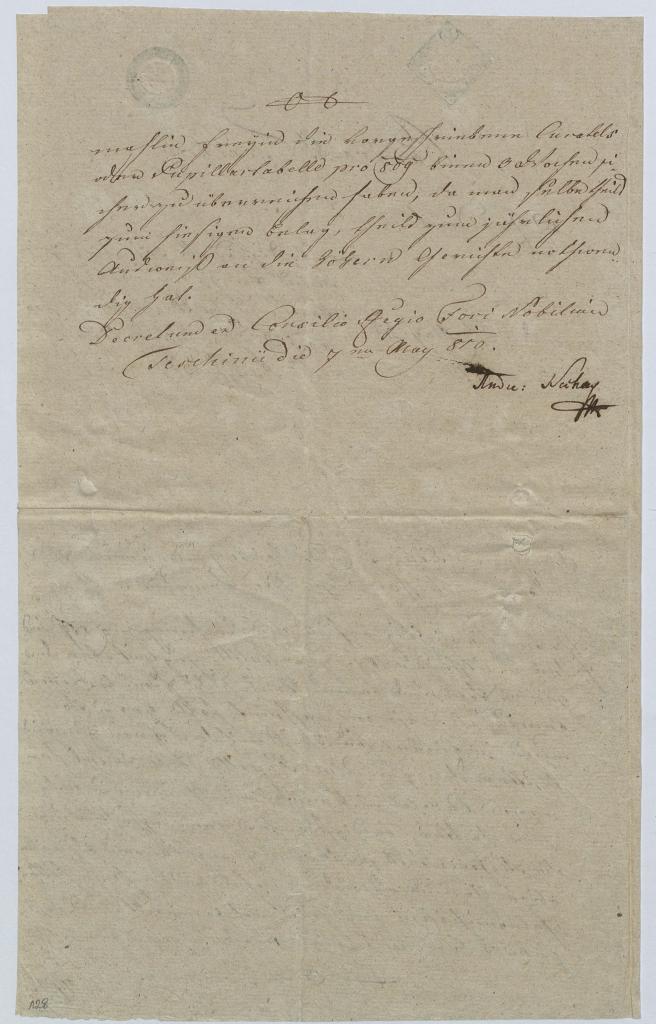 mahlin Freyin die vorgeschriebene Curatels
oder Pupillartabelle pro 809 binnen 3 Wochen si-
cher zu überreichen haben, da man selbe theils
zum hiesigen Beleg, theils zum jährlichen
Ausweiß an die höhern Gerichte nothwen-
dig hat.
Decretum ex Consilio Regio Fori Nobilium
Teschinii die 7ma May 810.
Andre:
128